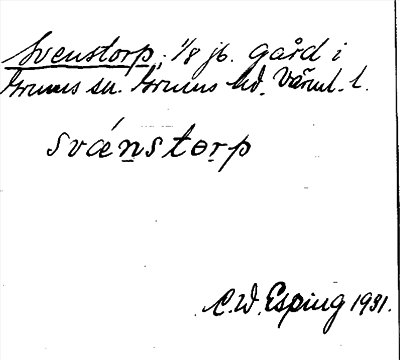 Svenstorp, 1/8 jb. gård i
Grums sn. Grums hd. Värml. l.
svǽnstorp
C.W. Esping 1931.